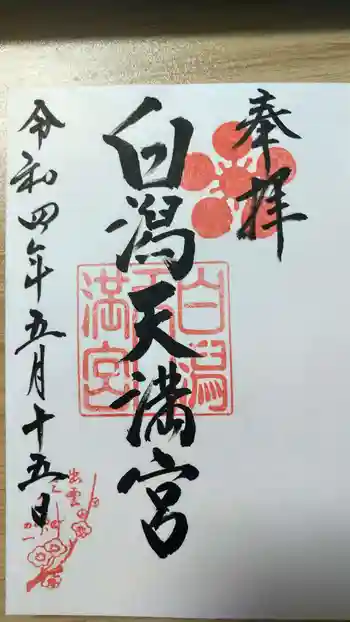 奉拝
白潟天満宮
令和四年五月十五日
白潟天満宮
出雲